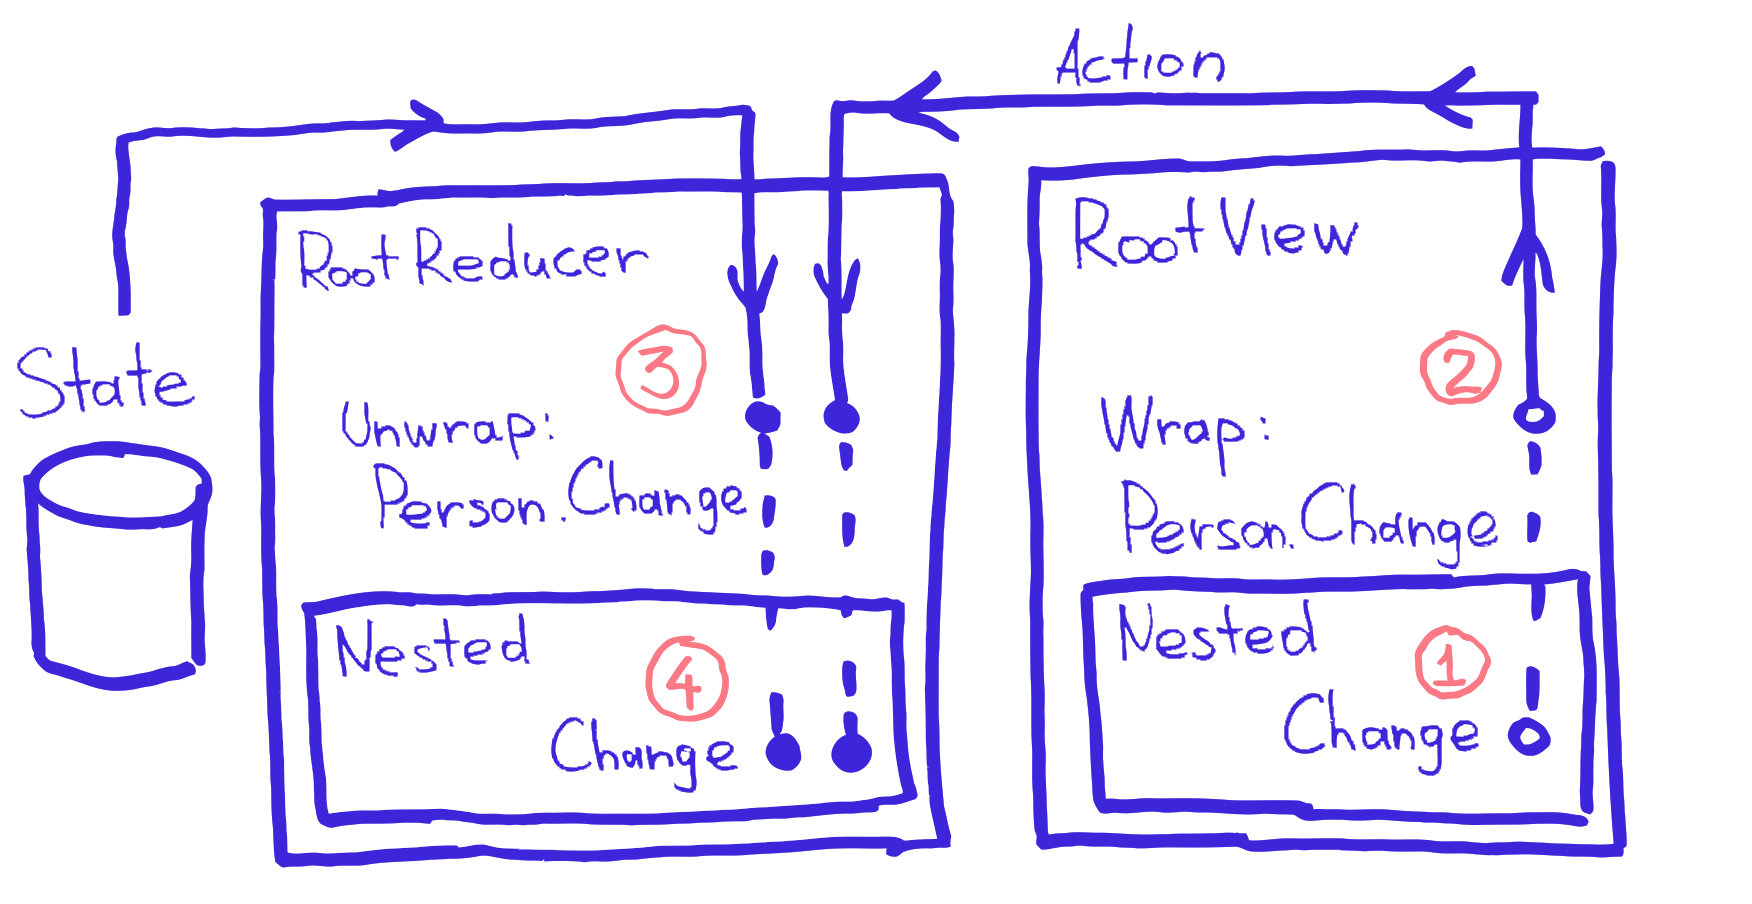 Action
RootReducer
3
Unwrap:
Person.Change
Nested
4
Change
State
RootView
2
Wrap:
Person.Change
Nested
1
Change